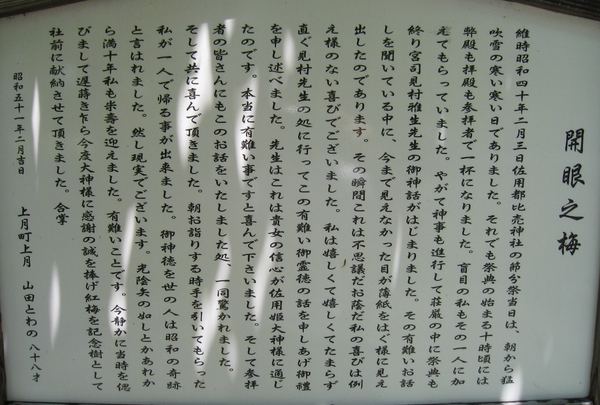 開眼之梅
維時昭和四十年二月三日佐用都比売神社の節分祭当日は、朝から猛
吹雪の寒い寒い日でありました。それでも祭典の始まる十時頃には
弊殿も拝殿も参拝者で一杯になりました。盲目の私もその一人に加
えてもらっていました。やがて神事も進行して荘厳の中に祭典も
終り宮司見村雅生先生の御神話がはじまりました。その有難いお話
しを聞いている中に、今まで見えなかった目が薄紙をはぐ様に見え
出したのであります。その瞬間これは不思議だお蔭だ私の喜びは例
え様のない喜びでございました。私は嬉しくて嬉しくてたまらず
直ぐ見村先生の処に行ってこの有難い御霊徳の話を申しあげ御禮
を申し述べました。先生はこれは貴女の信心が佐用姫大神様に通じ
たのです。本当に有難い事ですと喜んで下さいました。そして参拝
者の皆さんにもこのお話をいたしました処、一同驚かれました。
そして共に喜んで頂きました。朝お詣りする時手を引いてもらった
私が一人で帰る事が出来ました。御神徳を世の人は昭和の奇跡
と言はれました。然し現実でございます。光陰矢の如しとかあれか
ら満十年私も米壽を迎えました。有難いことです。今静かに当時を偲
びまして遅蒔き乍ら今度大神様に感謝の誠を捧げ紅梅を記念樹として
社前に献納させて頂きました。合掌
昭和五十一年二月吉日
上月町上月 山田とわの 八十八才